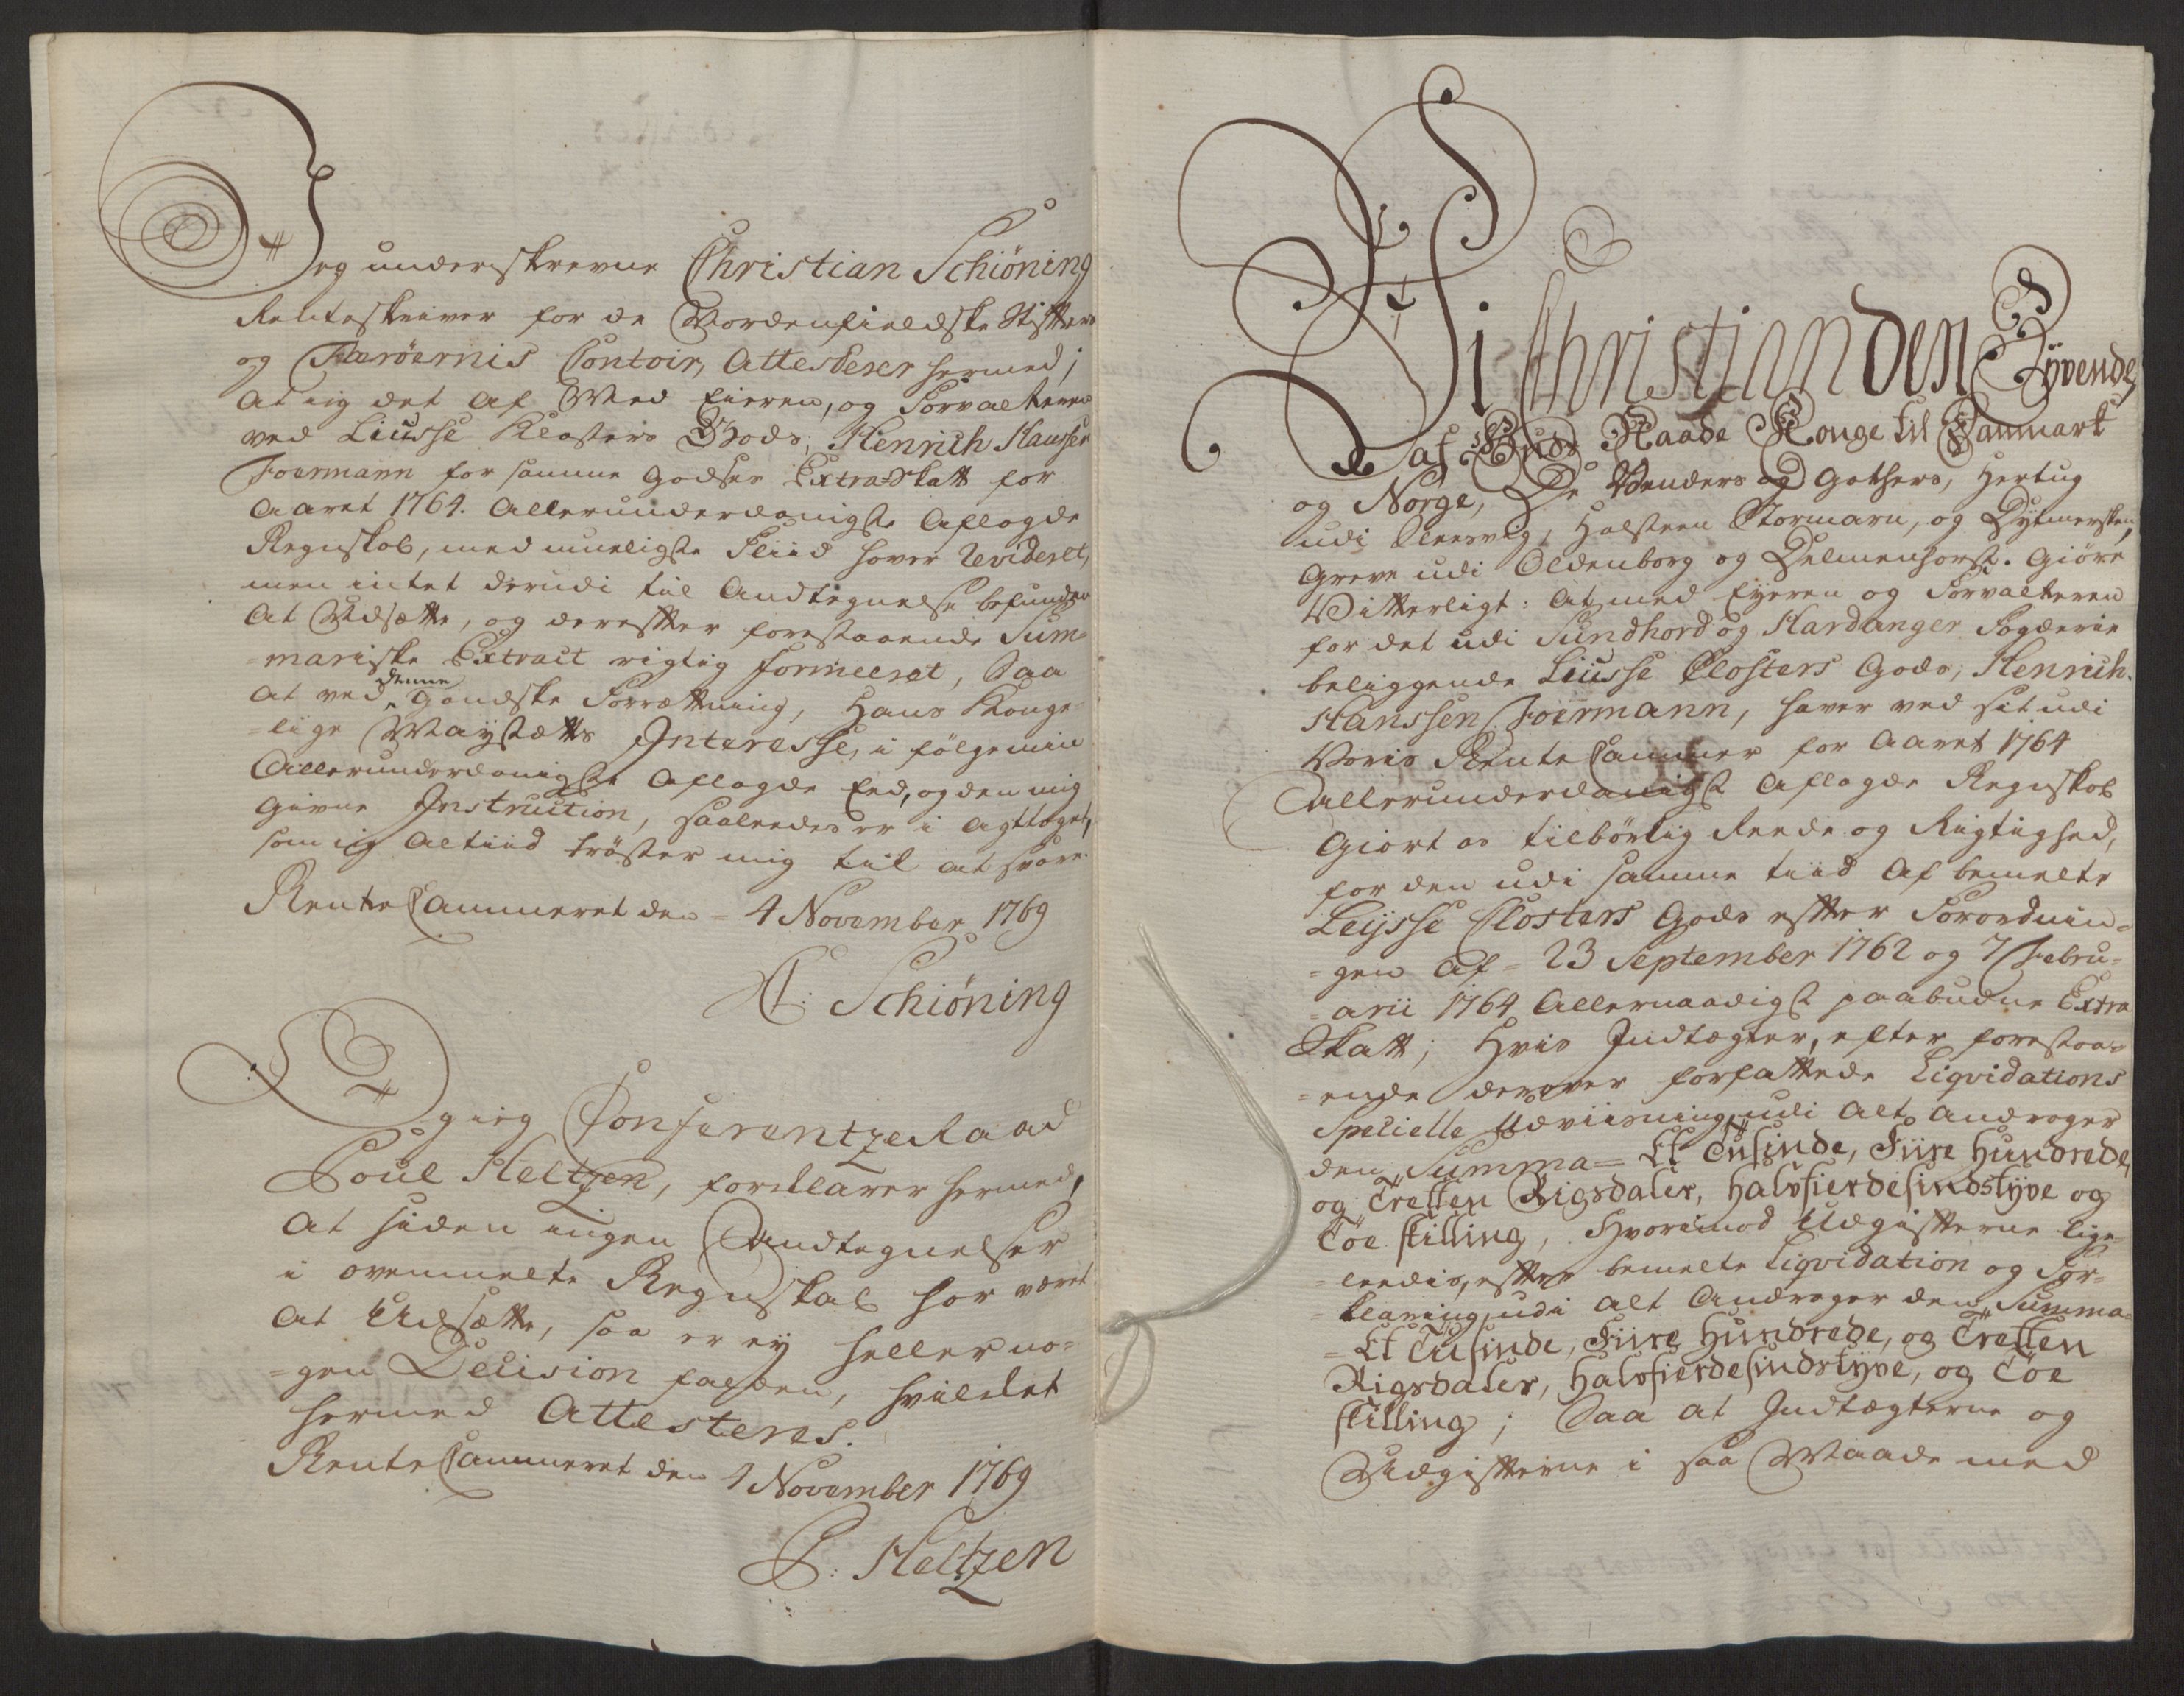 Jeg underskrevne Christian Schiöning
Renteskriver for de Nordenfieldske Stifter
og Færöernis Contoir, Attesterer hermed,
At ieg det Af Med Eieren, og Forvalteren
ved Liusse Klosters Gods, Henrich Hansen
Foermann for samme Godses Extra-Skatt for
Aaret 1764. Allerunderdanigste Aflagde
Regnskab, med mueligste Fliid haver Revideret,
men intet derudi til Andtegnelse befunden
At Udsætte, og derefter forestaaende Sum-
=mariske Extract rigtig formeeret, Saa
At ved denne Gandske Forrætning, Hans Konge-
=lige Mayestætts Interesse, i fölge min
Allerunderdanigste Aflagde Eed, og den mig
Givne Instruction, saaledes er i Agttaget,
som ieg Altiid tröster mig til at svare.
RenteCammeret den = 4 November 1769
C: Schiöning
Og ieg Conferentze Raad
Poul Heltzen, forklarer hermed,
At siden ingen Andtegnelser
i ovenmelte Regnskab har været
At Udsætte, saa er ey heller no-
=gen Decision falden, hvilket
hermed Attesteres.
RenteCammeret den 4 November 1769
P: Heltzen
Vi Christian den Syvende
af Guds Naade Konge til Danmark
og Norge, De Venders og Gothers, Hertug
udi Slesvig, Holsteen Stormarn, og Dytmersken,
Greve udi Oldenborg og Delmenhorst. Giöre
Vitterligt: At med Eyeren og Forvalteren
for det udi Sundhord og Hardanger Fogderie
beliggende Liusse Closters Gods, Henrich
Hanssen Foermann, haver ved sit udi
Voris RenteCammer for Aaret 1764
Allerunderdanigst Aflagde Regnskab
Giort os tilbörlig Reede og Rigtighed,
for den udi samme tiid Af bemelte
Leysse Closters Gods efter Forordnin-
=gen Af = 23 September 1762 og 7 Febru-
=arii 1764 Allernaadigst paabudne Extra
Skatt; Hvis Indtægter, efter forestaa-
=ende derover forfattede Liqvidations
Specielle Udviisning, udi Alt Andrager
den Summa = Et Tusinde, Fiire Hundrede,
og Tretten Rigsdaler, halvfierdesindstyve og
Toe skilling, Hvorimod Udgifterne lige-
=leedis, efter bemelte Liqvidation og For-
=klaring, udi Alt Andrager den Summa
= Et Tusinde, Fiire Hundrede, og Tretten
Rigsdaler, halvfierdesindstyve, og Toe
skilling; Saa at Indtægterne og
Udgifterne i saa Maade med